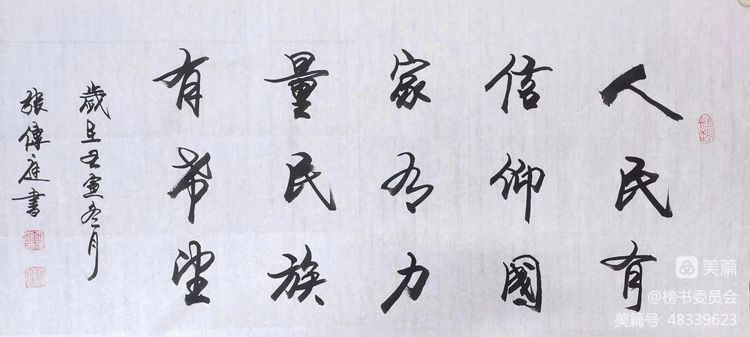 人民有
信仰國
家有力
量民族
有希望
歲且壬寅冬月
張偉庭書
美篇
@榜书委员会
美篇号: 48339623